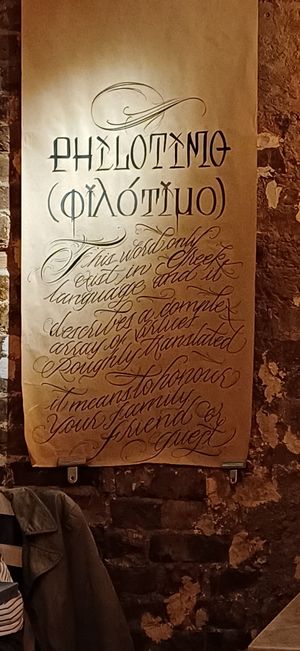 PHILOTIMO
(φιλότιμο)
This word only
exist in Greek
language and it
describes a complex
array of virtues
Roughly translated
it means to honour
your family
friend or
guest